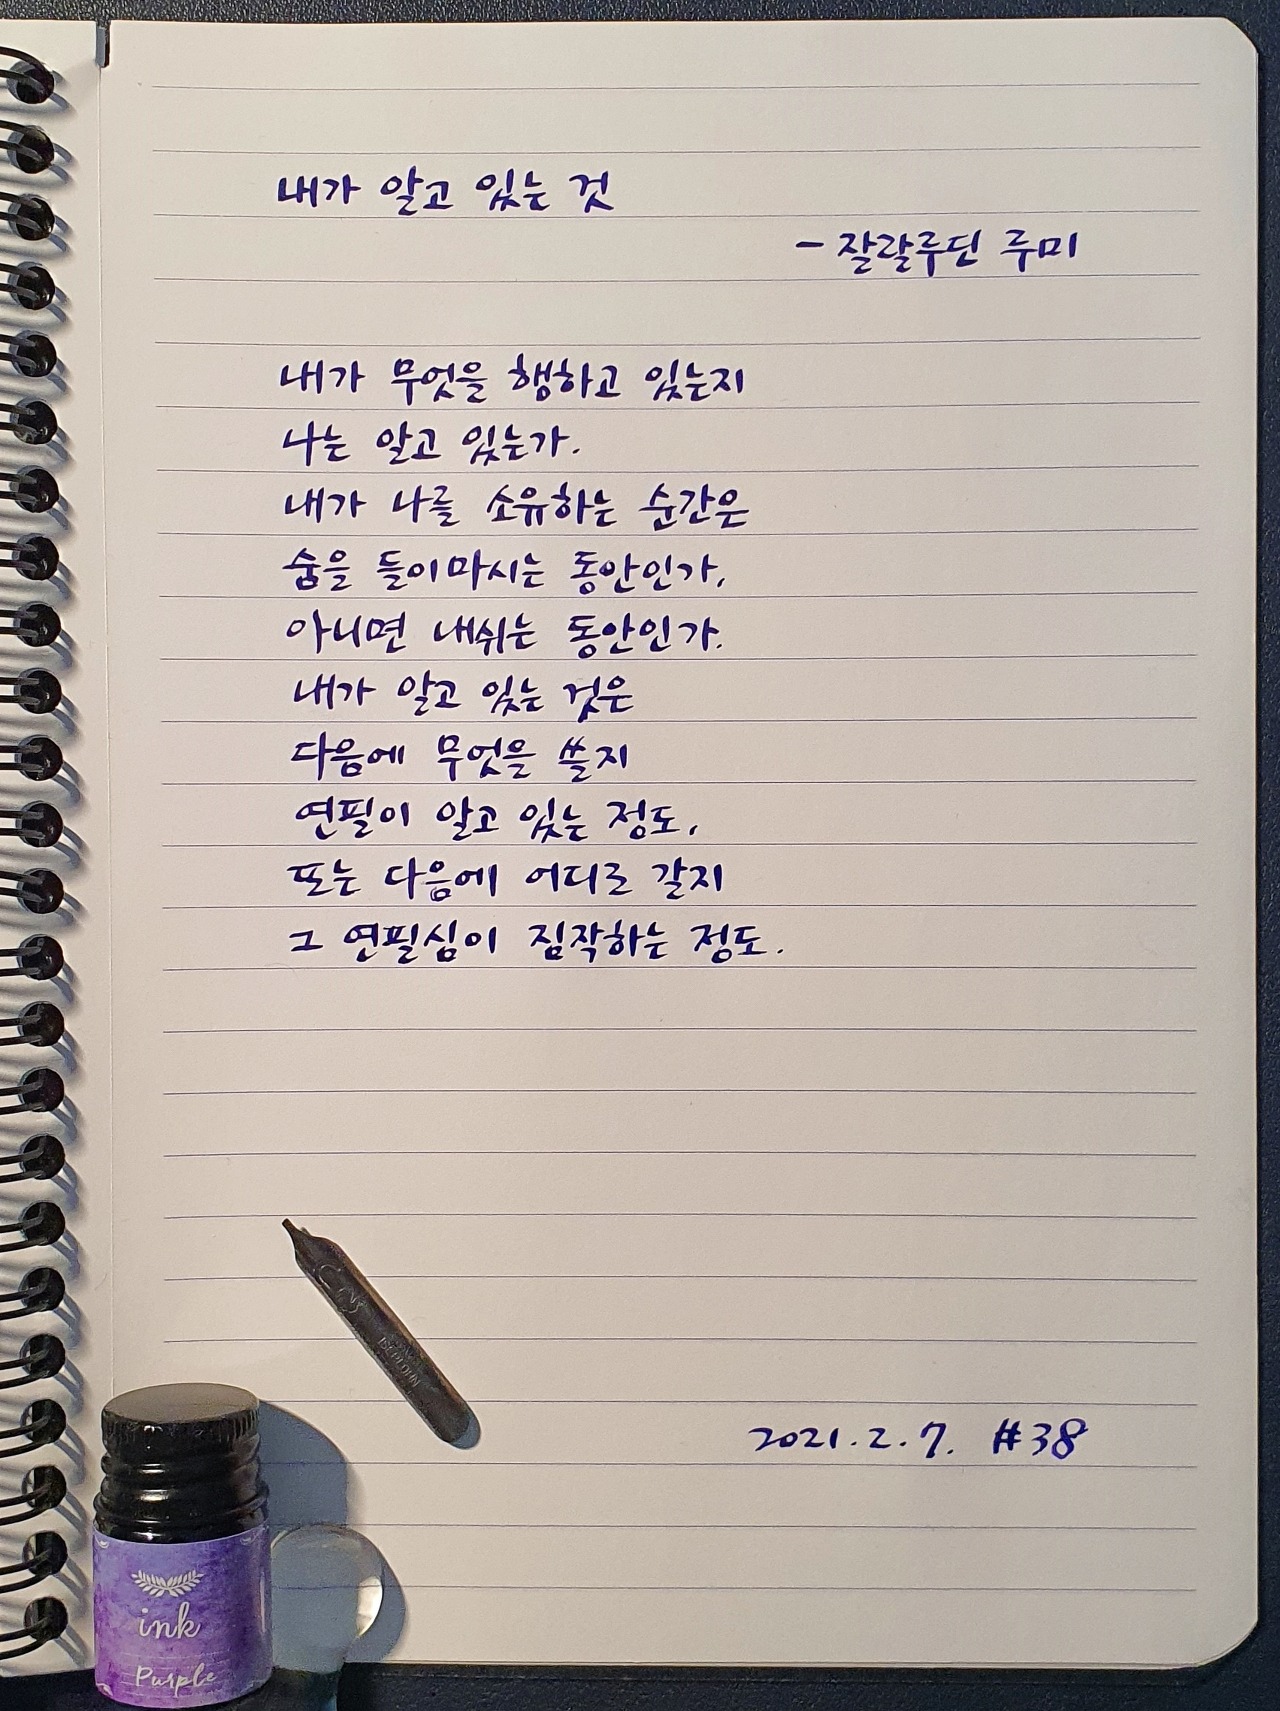 내가 알고 있는 것
- 잘랄루딘 루미
내가 무엇을 행하고 있는지
나는 알고 있는가.
내가 나를 소유하는 순간은
숨을 들이마시는 동안인가,
아니면 내쉬는 동안인가.
내가 알고 있는 것은
다음에 무엇을 쓸지
연필이 알고 있는 정도,
또는 다음에 어디로 갈지
그 연필심이 짐작하는 정도.
2021. 2. 7. #38
ink
Purple